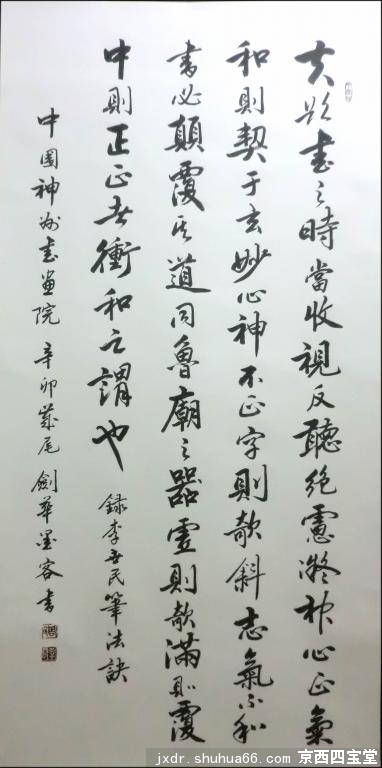 夫欲书之時當收視反聽绝慮凝神心正氣
和則契于玄妙心神不正字則欹斜志氣不和
書必顛覆其道同魯廟之器虚則欹满則覆
中則正正者衝和之謂也
録李世民筆法訣
中國神州书画院 辛卯歲尾 劍華墨客書
jxdr.shuhua66.com/京西四宝堂